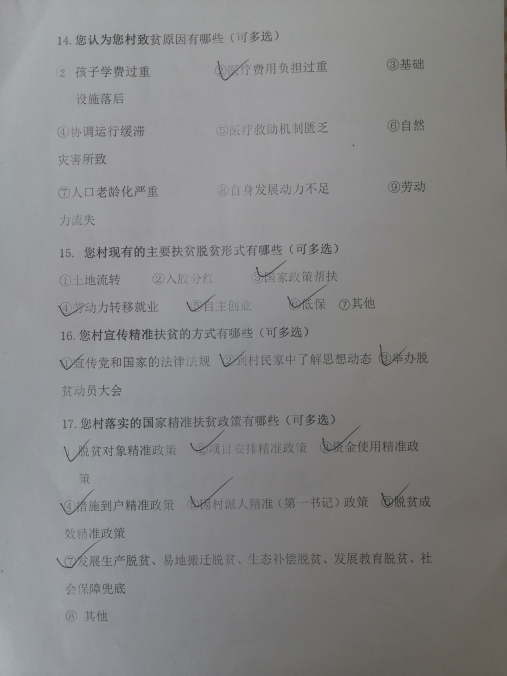 14.您认为您村致贫原因有哪些（可多选）
2 孩子学费过重 ②医疗费用负担过重 ③基础
设施落后
④协调运行缓滞 ⑤医疗救助机制匮乏 ⑥自然
灾害所致
⑦人口老龄化严重 ⑧自身发展动力不足 ⑨劳动
力流失
15. 您村现有的主要扶贫脱贫形式有哪些（可多选）
①土地流转 ②入股分红 ③国家政策帮扶
④劳动力转移就业 ⑤自主创业 ⑥低保 ⑦其他
16.您村宣传精准扶贫的方式有哪些（可多选）
①宣传党和国家的法律法规 ②到村民家中了解思想动态 ③举办脱
贫动员大会
17.您村落实的国家精准扶贫政策有哪些（可多选）
脱贫对象精准政策 ②项目安排精准政策 ③资金使用精准政
策
④措施到户精准政策 ⑤因村派人精准（第一书记）政策 ⑥脱贫成
效精准政策
⑦发展生产脱贫、易地搬迁脱贫、生态补偿脱贫、发展教育脱贫、社
会保障兜底
⑧ 其他